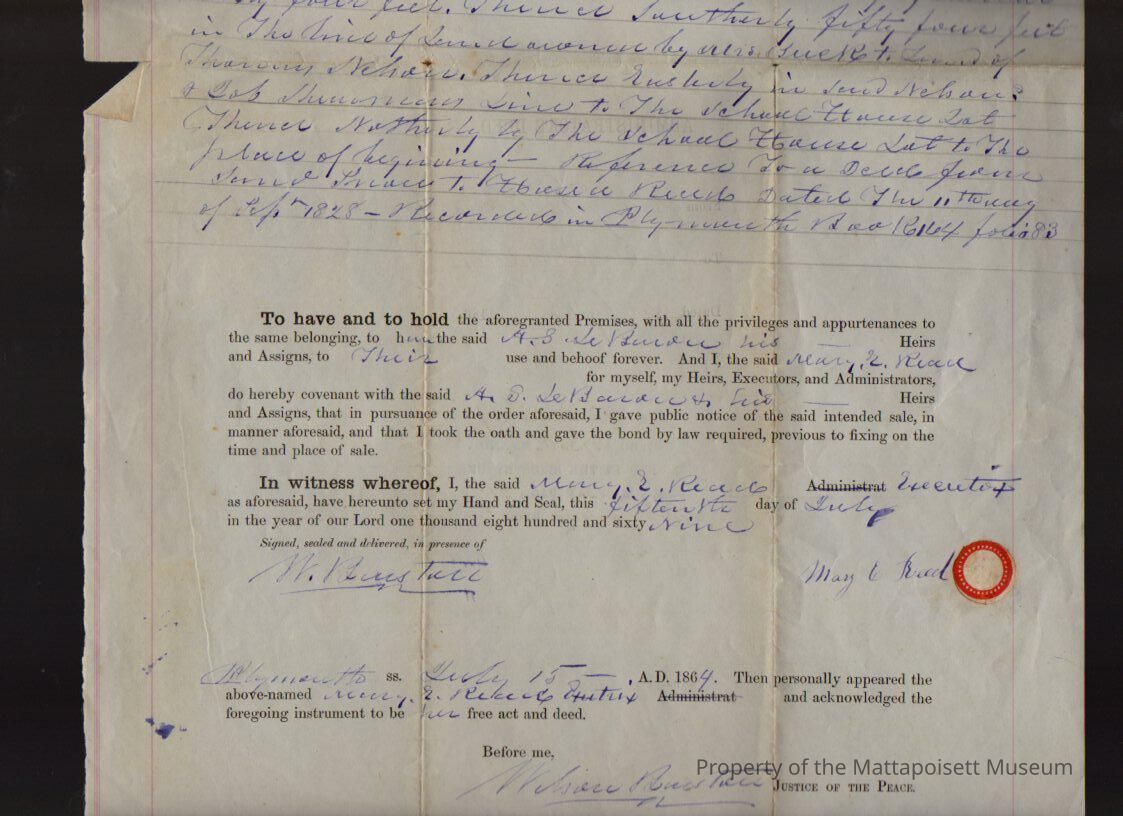 by four feet. Thence Southerly fifty four feet
in The line of Land owned by Mrs. to Land of
Thomas Nelson. Thence Easterly in said Nelson's
& Line to The School House Lot
Thence Northerly by The School House Lot to The
place of begining — Reference To a Deed from
to Dated The 11th day
of Sept 1828 — Recorded in Plymouth Book 164 folio 83
To have and to hold the aforegranted Premises, with all the privileges and appurtenances to
the same belonging, to him the said A. S. LeBaron his — Heirs
and Assigns, to Their use and behoof forever. And I, the said Mary. E. Read
for myself, my Heirs, Executors, and Administrators,
do hereby covenant with the said A. S. LeBaron & his — Heirs
and Assigns, that in pursuance of the order aforesaid, I gave public notice of the said intended sale, in
manner aforesaid, and that I took the oath and gave the bond by law required, previous to fixing on the
time and place of sale.
In witness whereof, I, the said Mary. E. Read Administrat Executrix
as aforesaid, have hereunto set my Hand and Seal, this fifteenth day of July
in the year of our Lord one thousand eight hundred and sixty Nine
Signed, sealed and delivered, in presence of
W. Barstow
Mary E Read
Plymouth ss. July 15 — . A.D. 186 . Then personally appeared the
above-named Mary. E. Read Administrat and acknowledged the
foregoing instrument to be her free act and deed.
Before me,
Wilson Barstow JUSTICE OF THE PEACE.
Property of the Mattapoisett Museum